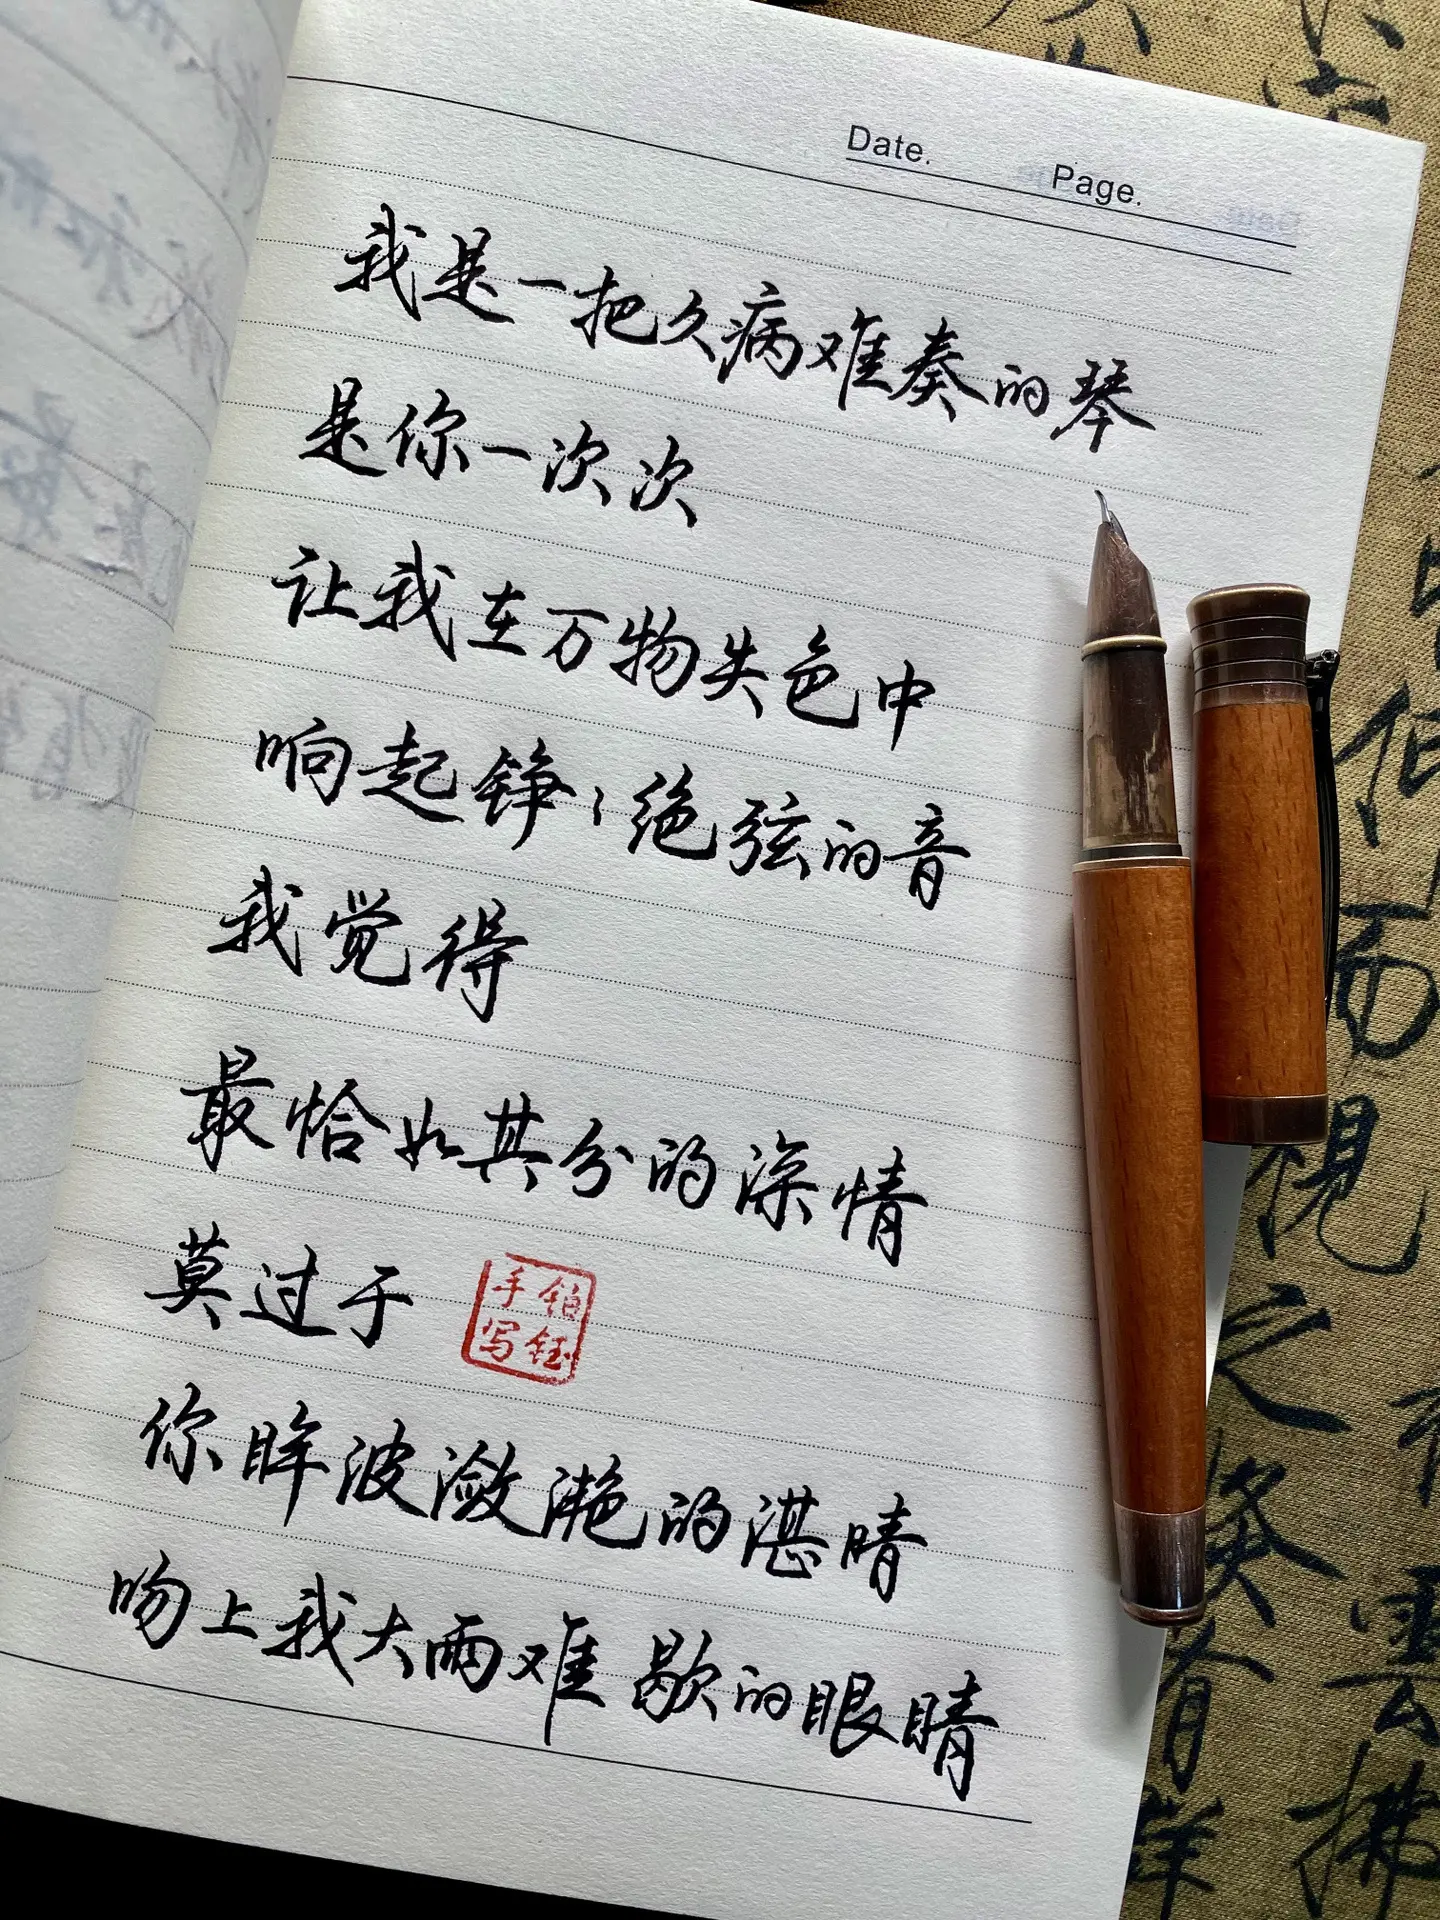 Date.
Page.
我是一把久病难奏的琴
是你一次次
让我在万物失色中
响起铮々绝弦的音
我觉得
最恰如其分的深情
莫过于
手写
铂钰
你眸波潋滟的湛晴
吻上我大雨难歇的眼睛
而視之
雲